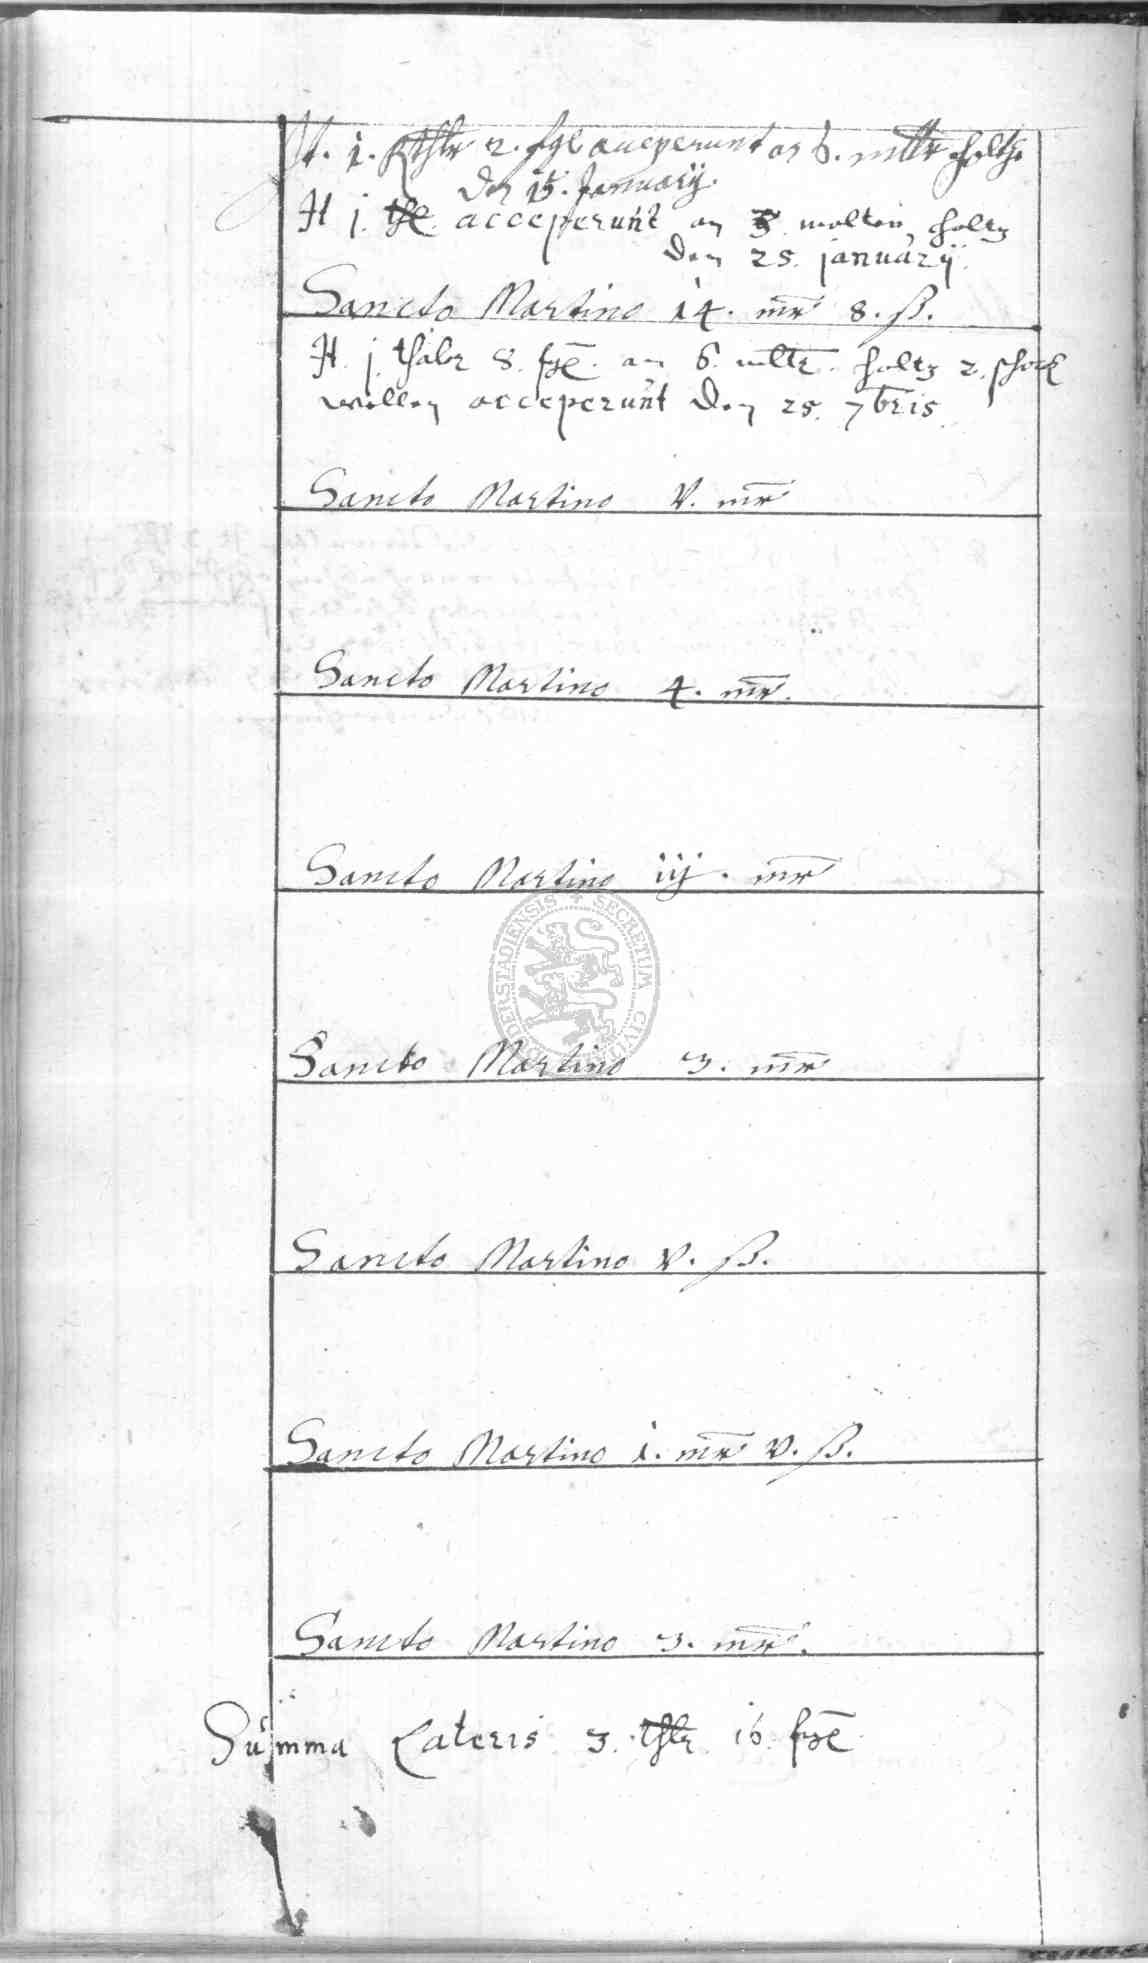 H. 1. Rthlr 2. sgl acceperunt an 6. mltr holtz
den 15. January.
H j. thl. acceperunt an 5 molter holtz
den 25. january.
Sancto Martino 14. mr 8. ß.
H. j. thaler 8. sgl. an 6. mltr. holtz 2. schock
wellen acceperunt den 25. 7bris
Sancto Martino V. mr
Sancto Martino 4. mr.
Sancto Martino iij. mr
DERSTADIENSIS SECRETUM CIVITA
Sancto Martino 3. mr
Sancto Martino V. ß.
Sancto Martino i. mr V. ß.
Sancto Martino 3. mr.
Summa Lateris 3. thlr 16 sgl